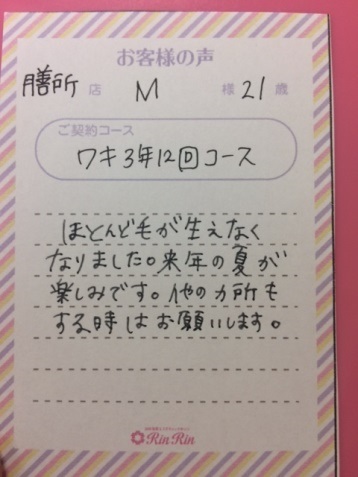 お客様の声
膳所 店 M 様 21 歳
ご契約コース
ワキ3年12回コース
ほとんど毛が生えなく
なりました。来年の夏が
楽しみです。他のカ所も
する時はお願いします。
RinRin